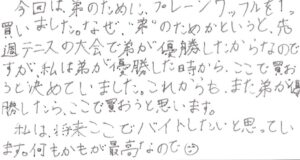 今回は、弟のために、プレーンワッフルを1つ
買いました。なぜ、"弟"のためかというと、先
週テニスの大会で弟が優勝したからなので
すが、私は弟が優勝した時から、ここで買お
うと決めていました。これからも、また弟が優
勝したら、ここで買おうと思います。
私は、将来ここでバイトしたいと思ってい
ます。何もかもが最高なので☺